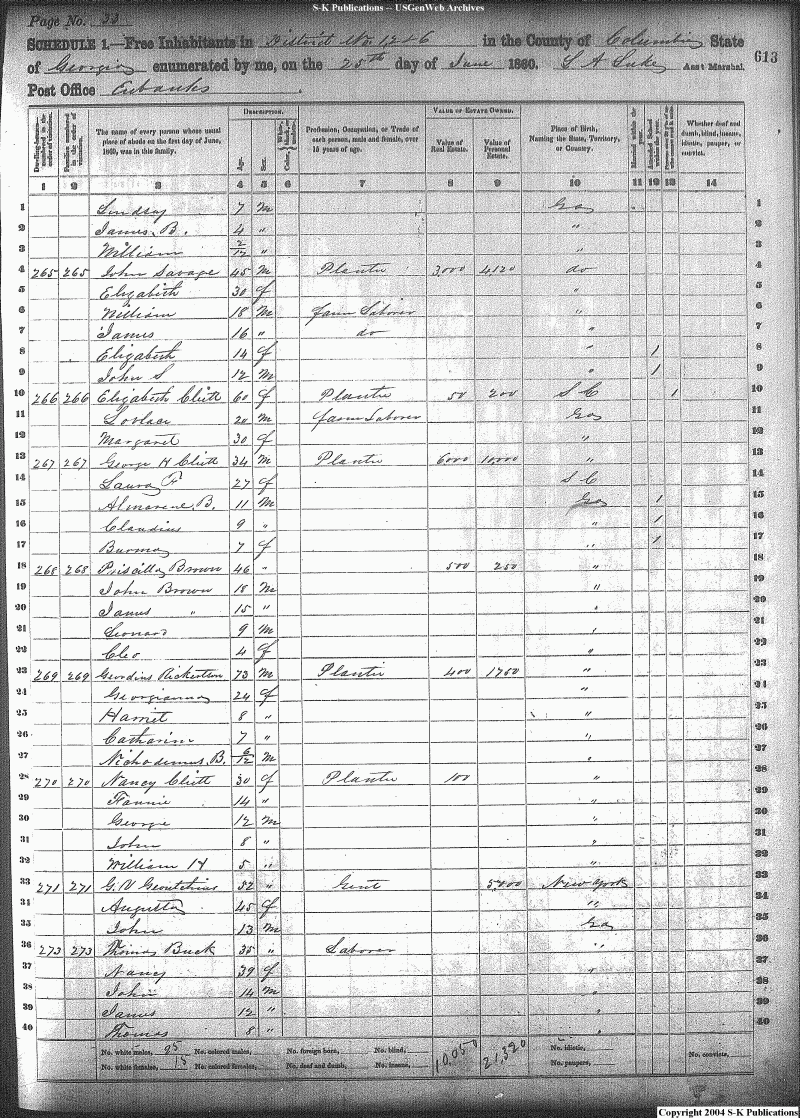 S-K Publications -- USGenWeb Archives
Page No. 33
SCHEDULE 1.—Free Inhabitants in District No. 1286 in the County of Columbia State
of Georgia enumerated by me, on the 25th day of June 1860. S A Luke Ass't Marshal. 613
Post Office Eubanks
DESCRIPTION. VALUE OF ESTATE OWNED.
Dwelling-houses—numbered in the order of visitation. Families numbered in the order of visitation. The name of every person whose usual place of abode on the first day of June, 1860, was in this family. Age. Sex. Color, Profession, Occupation, or Trade of each person, male and female, over 15 years of age. Value of Real Estate. Value of Personal Estate. Place of Birth, Naming the State, Territory, or Country. Married within the year. Attended School within the year. Whether deaf and dumb, blind, insane, idiotic, pauper, or convict.
1 2 3 4 5 6 7 8 9 10 11 12 13 14
1 Lindsay 7 M Ga 1
2 James B. 4 " " 2
3 William 2/12 " " 3
4 265 265 John Savage 45 M Planter 3,000 4120 do 4
5 Elizabeth 30 f " 5
6 William 18 M farm Laborer " 6
7 James 16 " do " 7
8 Elizabeth 14 f " 1 8
9 John S 12 M " 1 9
10 266 266 Elizabeth Cliett 60 f Planter 50 200 S C 1 10
11 Lovlace 20 M farm Laborer Ga 11
12 Margaret 30 f " 12
13 267 267 George H Cliett 34 M Planter 6000 10,000 " 13
14 Laura F 27 f S C 14
15 Almarene B. 11 M Ga 1 15
16 Claudius 9 " " 1 16
17 Burma 7 f " 1 17
18 268 268 Priscilla Brown 46 " 500 250 " 18
19 John Brown 18 M " 19
20 James " 15 " " 20
21 Leonard 9 M " 21
22 Cleo 4 f " 22
23 269 269 Geordius Rickertson 73 M Planter 400 1750 " 23
24 Georgianna 24 f " 24
25 Harriet 8 " " 25
26 Catharin 7 " " 26
27 Nichodemus B. 6/12 M " 27
28 270 270 Nancy Cliett 30 f Planter 100 " 28
29 Fannie 14 " " 29
30 George 12 M " 30
31 John 8 " " 31
32 William H 5 " " 32
33 271 271 G. V 52 " Gent 5,000 New York 33
34 Augusta 45 f " 34
35 John 13 M Ga 35
36 273 273 Thomas Buck 35 " Laborer " 36
37 Nancy 39 f " 37
38 John 14 M " 38
39 James 12 " " 39
40 Thomas 8 " " 40
No. white males, 25 No. colored males, No. foreign born, No. blind, 10,050 21,320 No. idiotic,
No. white females, 15 No. colored females, No. deaf and dumb, No. insane, No. paupers, No. convicts,
Copyright 2004 S-K Publications